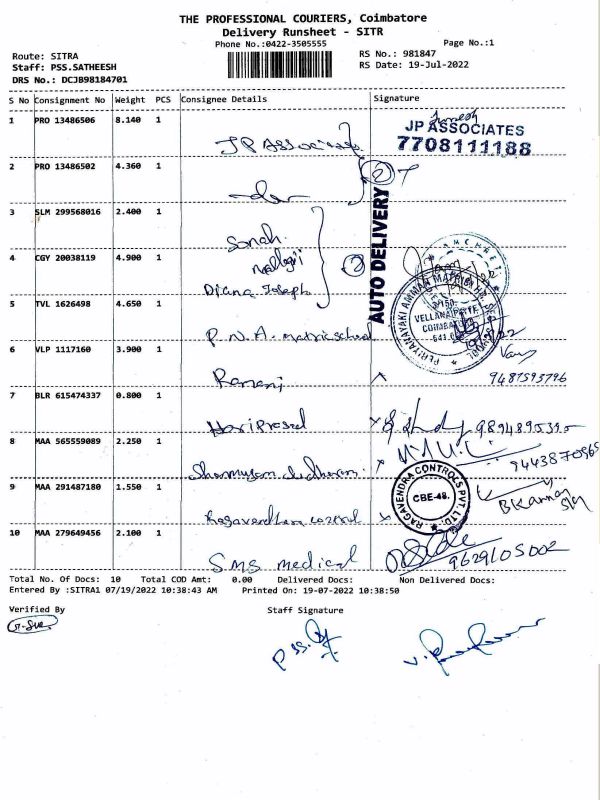 THE PROFESSIONAL COURIERS, Coimbatore
Delivery Runsheet - SITR
Phone No.:0422-3505555
Page No.:1
Route: SITRA
RS No.: 981847
Staff: PSS.SATHEESH
RS Date: 19-Jul-2022
DRS No.: DCJB98184701
S No Consignment No Weight PCS Consignee Details Signature
1 PRO 13486506 8.140 1
JP Associates
JP ASSOCIATES
7708111188
2 PRO 13486502 4.360 1
2
AUTO DELIVERY
3 SLM 299568016 2.400 1
Sonah
4 CGY 20038119 4.900 1
Diana Joseph
2
5 TVL 1626498 4.650 1
P.N.A. matric school
PERIYANAYAKI AMMAN MATRIC HR. SEC. SCHOOL
VELLANAIPATTI
6 VLP 1117160 3.900 1
Ramani
9487595796
7 BLR 615474337 0.800 1
Hari Prasad
9894895395
8 MAA 565559089 2.250 1
9443870965
9 MAA 291487180 1.550 1
RAGAVENDRA CONTROLS PVT. LTD.
CBE-48.
10 MAA 279649456 2.100 1
SMS medical
9629105002
Total No. Of Docs: 10 Total COD Amt: 0.00 Delivered Docs: Non Delivered Docs:
Entered By :SITRA1 07/19/2022 10:38:43 AM Printed On: 19-07-2022 10:38:50
Verified By
Staff Signature